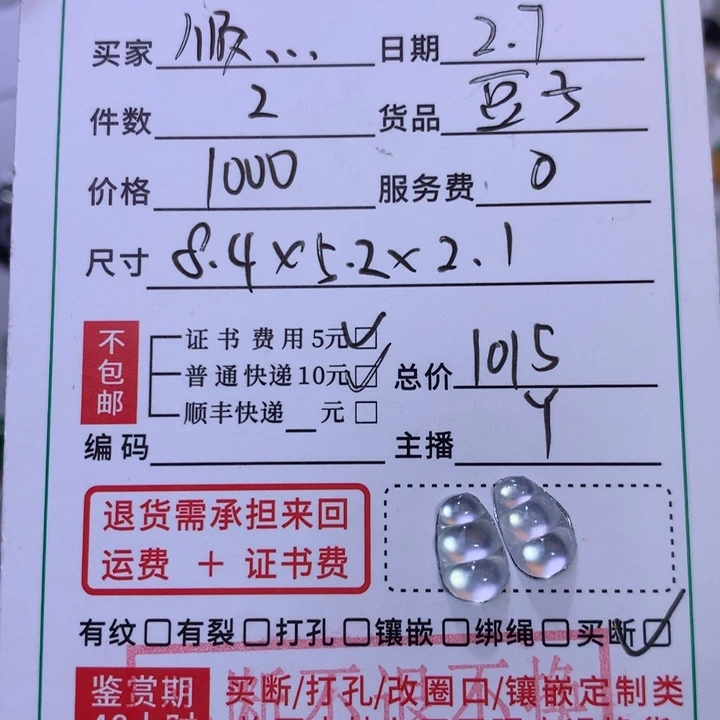 买家 顺... 日期 2.7
件数 2 货品 豆子
价格 1000 服务费 0
尺寸 8.4×5.2×2.1
不包邮
证书费用5元 ✓
普通快递10元 ✓
总价 1015
顺丰快递__元 □
编码 主播 Y
退货需承担来回
运费 + 证书费
有纹□有裂□打孔□镶嵌□绑绳□买断 ✓
断不退不换
鉴赏期 买断/打孔/改圈口/镶嵌定制类